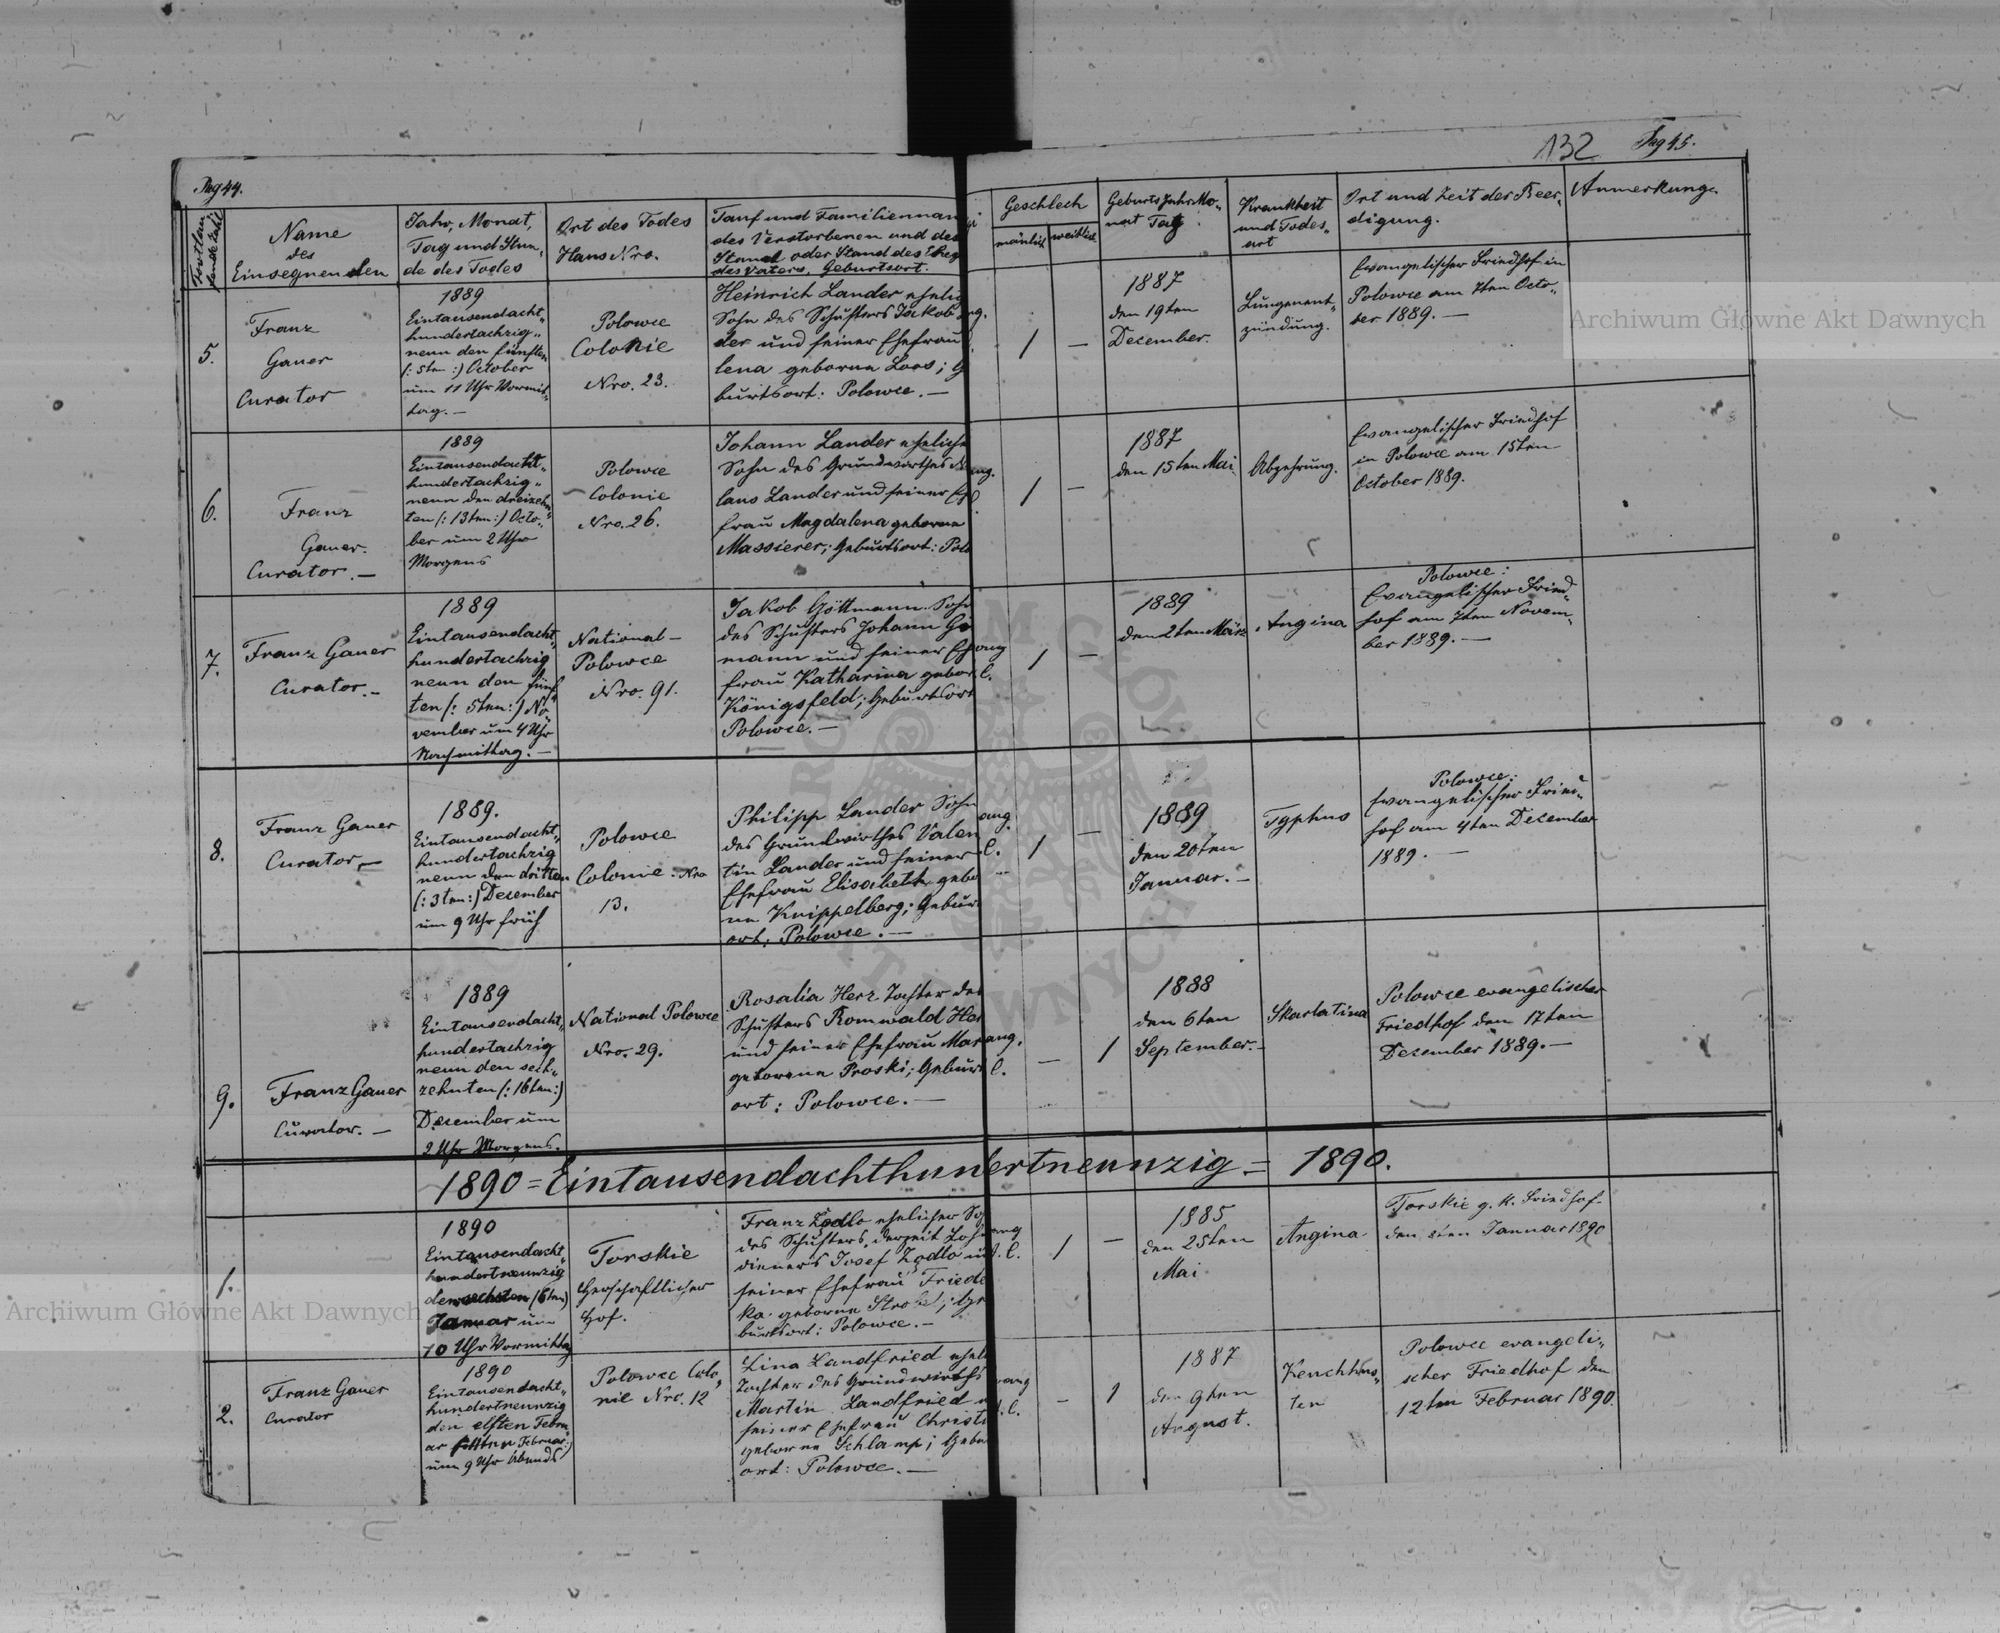 Pag 44.
132 Pag 45.
Fortlaufende Zahl
Name
des
Einsegnenden
Jahr, Monat,
Tag und Stun-
de des Todes
Ort des Todes
Haus Nro.
Tauf und Familiennam
des Verstorbenen und des
Stand oder Stand des
des Vaters, Geburtsort.
Geschlech
mänlich weiblich
Geburts Jahr Mo-
nat Tag
Krankheit
und Todes-
art
Ort und Zeit der Beer-
digung.
Anmerkung.
5.
Franz
Gauer
Curator
1889
Eintausendacht-
hundertachzig-
neun den fünften
(: 5ten :) October
um 11 Uhr Vormit-
tag. —
Polowce
Colonie
Nro. 23.
Heinrich Lander eheli
Sohn des Schusters Jakob
der und seiner Ehefrau
lena geborne Loos; G
burtsort: Polowce. —
ng.
1 —
1887
den 19ten
December.
Lungenent-
zündung.
Evangelischer Friedhof in
Polowce am 7ten Octo-
ber 1889. —
6.
Franz
Gauer.
Curator. —
1889
Eintausendacht-
hundertachzig-
neun den dreizehn-
ten (: 13ten :) Octo-
ber um 2 Uhr
Morgens
Polowce
Colonie
Nro. 26.
Johann Lander ehelich
Sohn des Grundwirthes
laus Lander und seiner Eh
frau Magdalena geborne
Massierer; Geburtsort: Polo
ng.
1 —
1887
den 15ten Mai
Abzehrung.
Evangelischer Friedhof
in Polowce am 15ten
October 1889.
7.
Franz Gauer
Curator. —
1889
Eintausendacht-
hundertachzig
neun den fünf-
ten (: 5ten :) No-
vember um 4 Uhr
Nachmittag. —
National-
Polowce
Nro. 91.
Jakob Göttmann Sohn
des Schusters Johann Gö
mann und seiner Eh
frau Katharina gebor
Königsfeld; Geburtsort
Polowce. —
ang
C.
1 —
1889
den 2ten März
Angina
Polowce:
Evangelischer Fried-
hof am 7ten Novem-
ber 1889. —
8.
Franz Gauer
Curator —
1889.
Eintausendacht-
hundertachzig
neun den dritten
(: 3ten :) December
um 9 Uhr früh
Polowce
Colonie. Nro
13.
Philipp Lander Sohn
des Grundwirthes Valen
tin Lander und seiner
Ehefrau Elisabeth gebo
ne Knippelberg; Gebur
ort: Polowce. —
ang.
C.
1 —
1889
den 20ten
Januar. —
Typhus
Polowce:
Evangelischer Fried-
hof am 4ten December
1889. —
9.
Franz Gauer
Curator. —
1889
Eintausendacht-
hundertachzig
neun den sech-
zehnten (: 16ten :)
December um
2 Uhr Morgens.
National Polowce
Nro. 29.
Rosalia Herz Tochter des
Schusters Romwald Her
und seiner Ehefrau Mar
geborene Proski; Gebur
ort: Polowce. —
ang.
C.
— 1
1888
den 6ten
September. —
Skarlatina
Polowce evangelischer
Friedhof den 17ten
December 1889. —
1890 = Eintausendachthundertneunzig = 1890.
1.
1890
Eintausendacht-
hundertneunzig
den sechsten (6ten)
Januar um
10 Uhr Vormittag
Torskie
Herschaftlicher
Hof.
Franz Zodlo ehelicher So
des Schusters, derzeit
dieners Josef Zodlo
seiner Ehefrau Friede
ka geborne Strobel; Ge
burtsort: Polowce. —
ang
C.
1 —
1885
den 25ten
Mai
Angina
Torskie g. k. Friedhof
den 8ten Januar 1890
2.
Franz Gauer
Curator
1890
Eintausendacht-
hundertneunzig
den elften Febru
ar Februar:)
um 9 Uhr Abends
Polowce Colo-
nie Nro. 12
Lina Landfried eheli
Tochter des Grundwirths
Martin Landfried
seiner Ehefrau Christi
geborne Schlamp; Gebu
ort: Polowce. —
ang
C.
— 1
1887
den 9ten
August.
Keuchhus-
ten
Polowce evangeli-
scher Friedhof den
12ten Februar 1890.
Archiwum Główne Akt Dawnych
Archiwum Główne Akt Dawnych